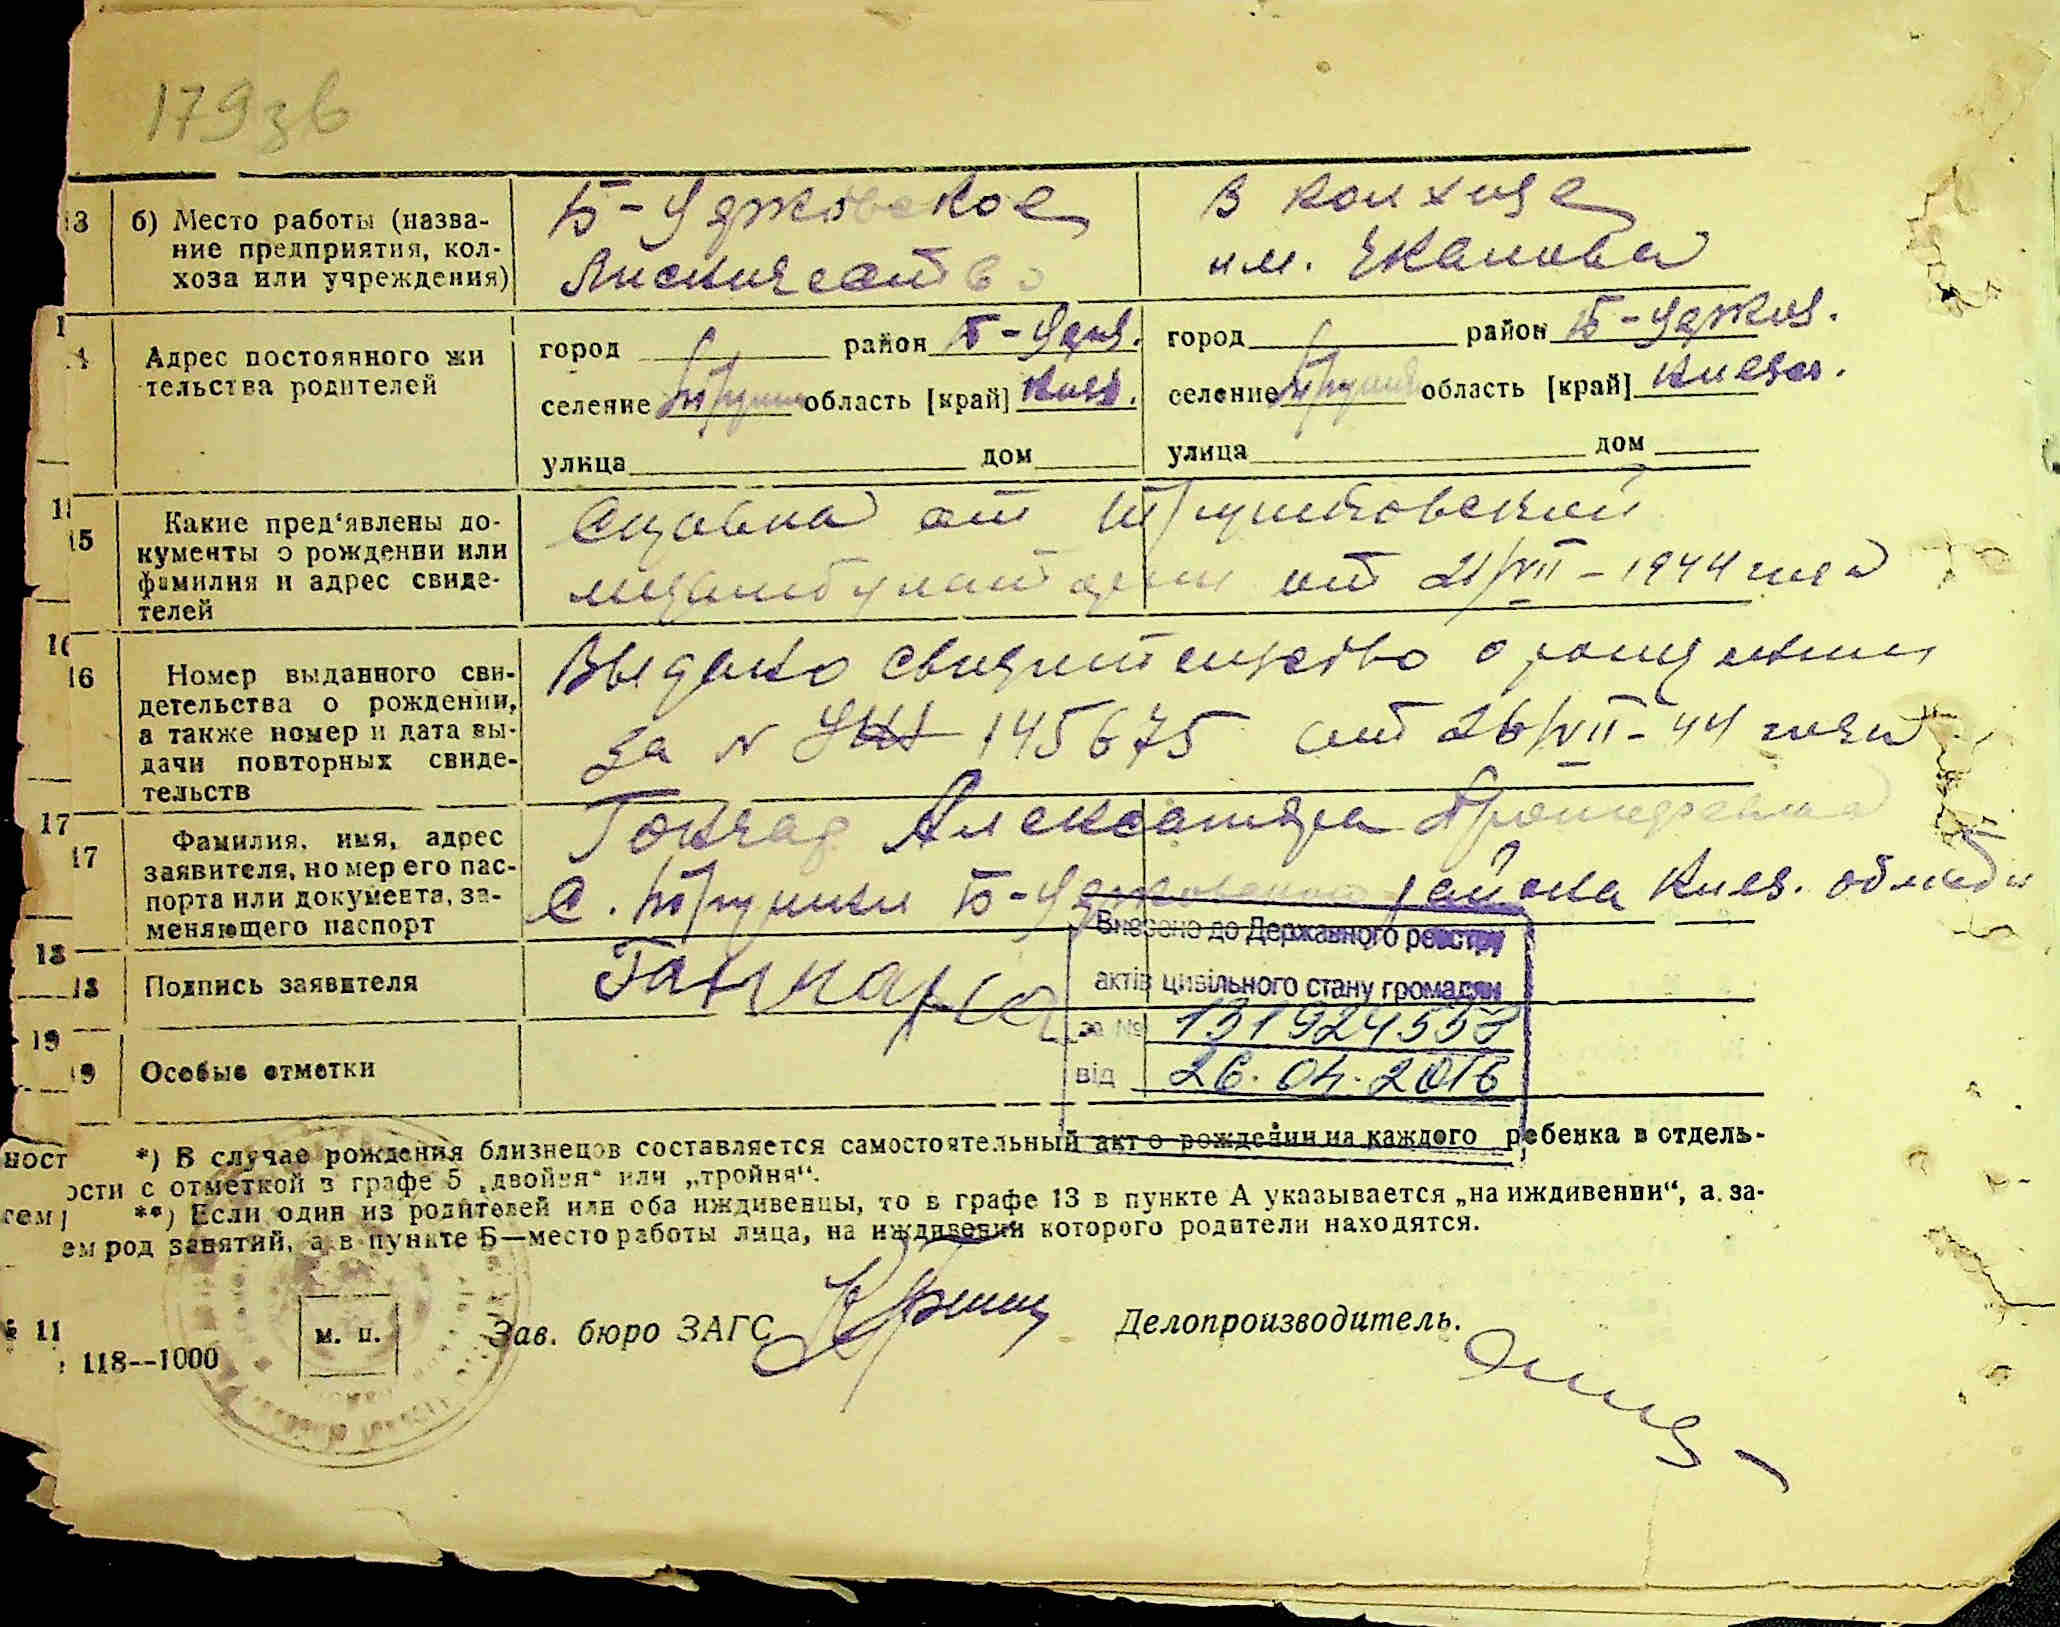 179зв
13
б) Место работы (назва-
ние предприятия, кол-
хоза или учреждения)
Б-Церковское
Лисничество
В колхозе
им. Чкалова
14
Адрес постоянного жи
тельства родителей
город район Б-Церк.
селение область [край] Киев.
улица дом
город район Б-Церков.
селение область [край] Киевск.
улица дом
15
Какие пред'явлены до-
кументы о рождении или
фамилия и адрес свиде-
телей
Справка от
от 21/VII-1944 года
16
Номер выданного сви-
детельства о рождении,
а также номер и дата вы-
дачи повторных свиде-
тельств
Выдано свидетельство о рождении
за N 145675 от 26/VII-44 года
17
17
Фамилия, имя, адрес
заявителя, номер его пас-
порта или документа, за-
меняющего паспорт
Гончар Александра
с. Трушки Б-Церковского района Киев. области
18
18
Подпись заявителя
Гончарка
19
19
Особые отметки
Внесено до Державного реєстру
актів цивільного стану громадян
за № 131924558
від 26.04.2016
ност *) В случае рождения близнецов составляется самостоятельный акт о рождении на каждого ребенка в отдель-
ости с отметкой в графе 5 „двойня“ или „тройня“.
тем **) Если один из родителей или оба иждивенцы, то в графе 13 в пункте А указывается „на иждивении“, а за-
ем род занятий, а в пункте Б—место работы лица, на иждивении которого родители находятся.
м. п.
Зав. бюро ЗАГС
Делопроизводитель.
11
118--1000